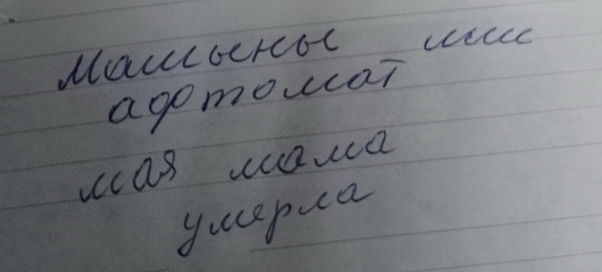 Машыны мне
афтомат
мая мама
умерла